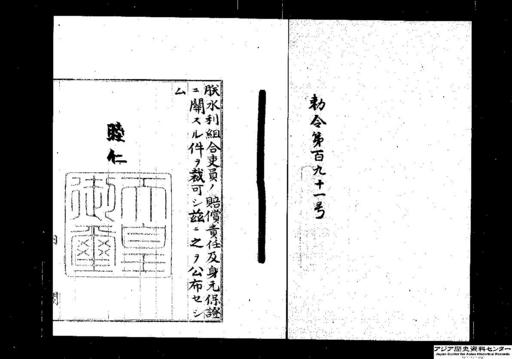 勅令第百九十一号
朕水利組合吏員ノ賠償責任及身元保證
ニ關スル件ヲ裁可シ茲ニ之ヲ公布セシ
ム
睦仁
天皇御璽
内
閣
アジア歴史資料センター
Japan Center for Asian Historical Records